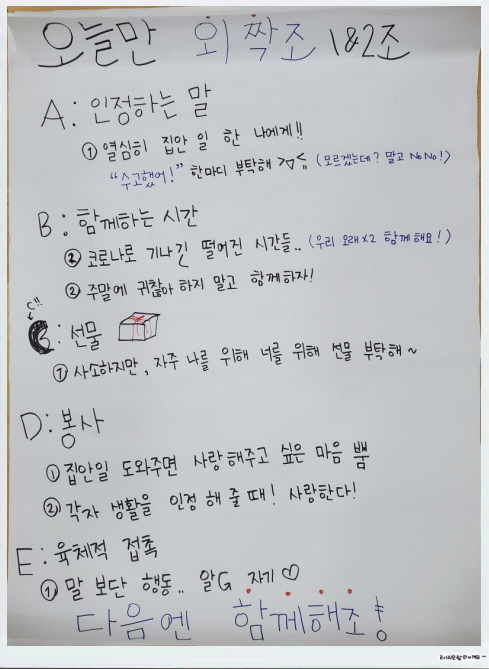 오늘만 외 짝조 1&2조
A: 인정하는 말
① 열심히 집안 일 한 나에게!!
"수고했어!" 한마디 부탁해 >▽<;; (모르겠는데? 말고 NoNo!)
B: 함께하는 시간
② 코로나로 기나긴 떨어진 시간들.. (우리 오래x2 함께 해요!)
② 주말에 귀찮아 하지 말고 함께하자!
C!!
B: 선물
① 사소하지만, 자주 나를 위해 너를 위해 선물 부탁해~
D: 봉사
① 집안일 도와주면 사랑해주고 싶은 마음 뿜
② 각자 생활을 인정 해 줄 때! 사랑한다!
E: 육체적 접촉
① 말 보단 행동.. 알G 자기♡
다음엔 함께해조!